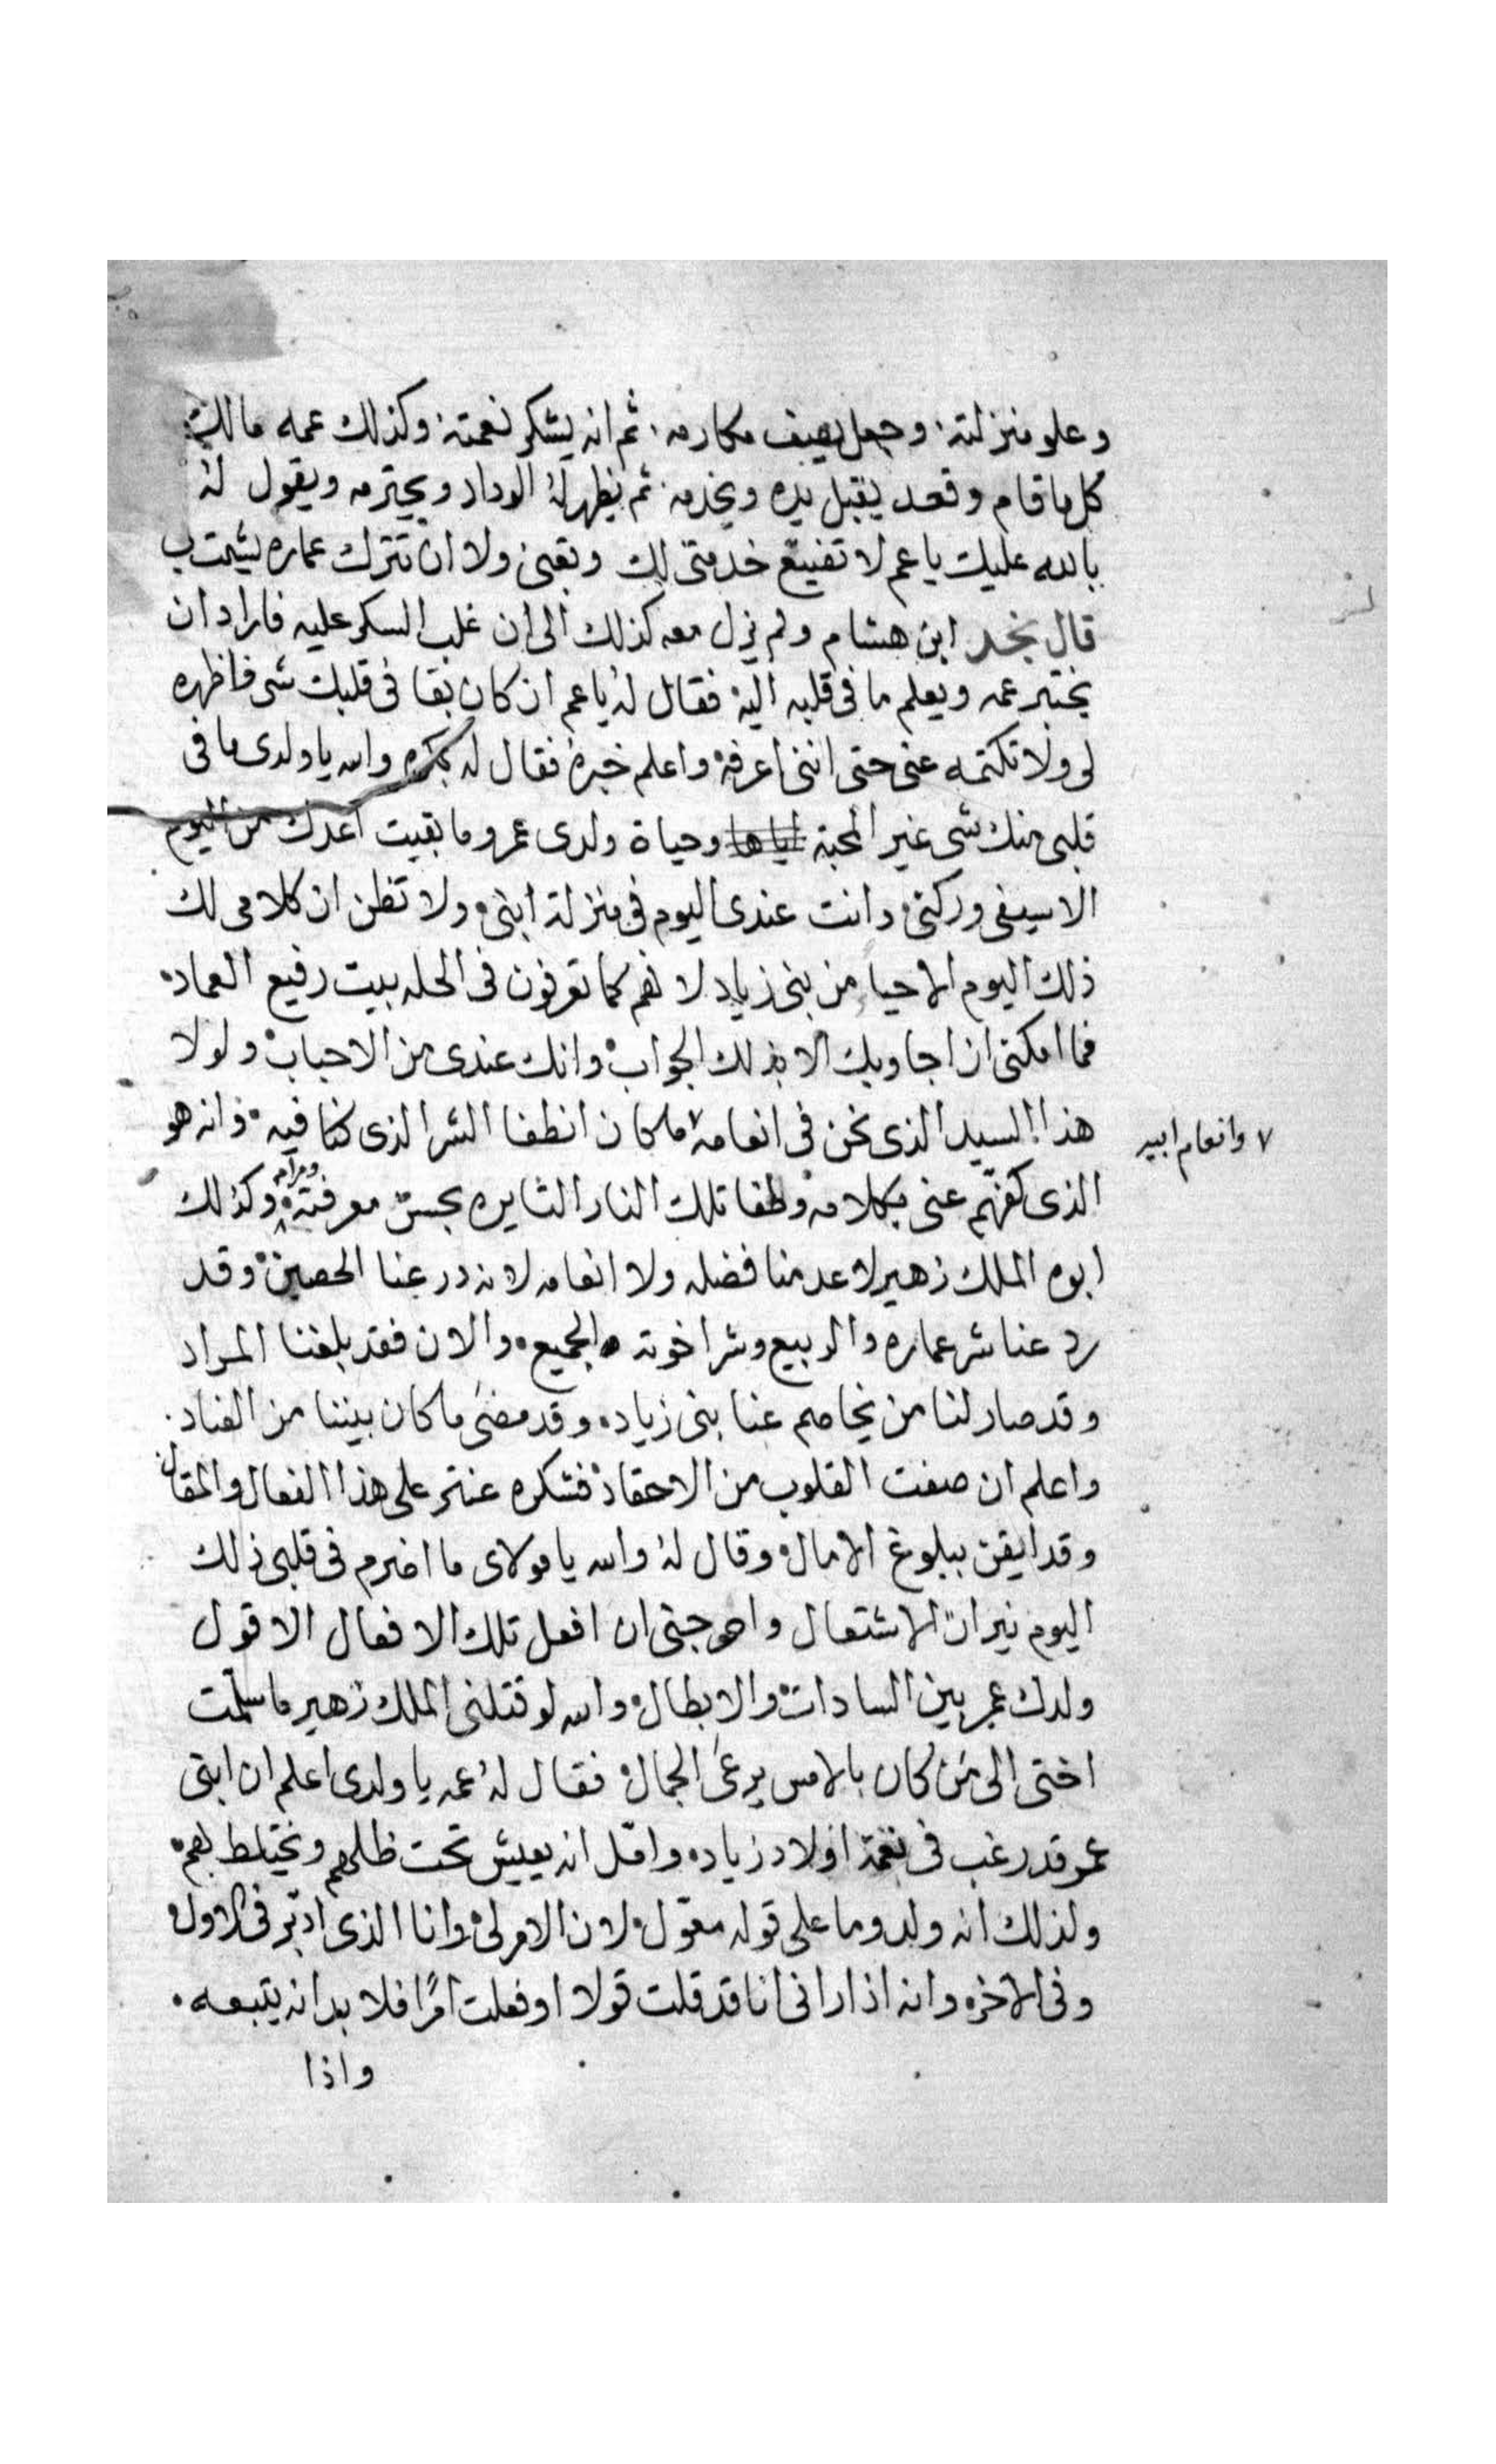 وعلو منزلته. وجعل يصيف مكارمه. ثم انه يشكر نعمته. وكذلك عمه مالك
كل ما قام وقعد يقبل يده ويخدمه. ثم يظهر لهُ الوداد ويحترمه ويقول لهُ
بالله عليك يا عم لا تضيّع خدمتى لك وتعبى ولا ان تترك عماره يشمت بى
قال نجد ابن هشام ولم يزل معه كذلك الى ان غلب السكر عليه فاراد ان
يختبر عمه ويعلم ما فى قلبه اليه فقال لهُ يا عم ان كان بقا فى قلبك شى فاظهره
لى ولا تكتمه عنى حتى اننى اعرفه واعلم خبره فقال له والله يا ولدى ما فى
قلبى منك شى غير المحبة وحياة ولدى عمرو ما بقيت اعدك من اليوم
الا سيفى وركنى وانت عندى اليوم فى منزلة ابنى ولا تظن ان كلامى لك
ذلك اليوم الا حيا من بنى زياد لانهم كما تعرفون فى الحله بيت رفيع العماد
فما امكنى ان اجاوبك الا بذلك الجواب وانك عندى من الاحباب ولولا
هذا السيد الذى نحن فى انعامه ٧ ما كان انطفا الشر الذى كنا فيه وانه هو
٧ وانعام ابيه
الذى كفهّم عنى بكلامه وطفا تلك النار الثايره بحسن معرفته ومرامه وكذلك
ابوه الملك زهير لا عدمنا فضله ولا انعامه لانه درعنا الحصين وقد
رد عنا شر عماره والربيع وشر اخوته الجميع والان فقد بلغنا المراد
وقد صار لنا من يخاصم عنا بنى زياد. وقد مضى ما كان بيننا من العناد.
واعلم ان صفت القلوب من الاحقاد فشكره عنتر على هذا الفعال والمقال
وقد ايقن ببلوغ الامال وقال لهُ والله يا مولاى ما اضرم فى قلبى ذلك
اليوم نيران الاشتعال واحوجنى ان افعل تلك الافعال الا قول
ولدك عمر بين السادات والابطال والله لو قتلنى الملك زهير ما سلّمت
اختى الى من كان بالامس يرعى الجمال فقال لهُ عمه يا ولدى اعلم ان ابنى
عمر قد رغب فى نعمة اولاد زياد وامّل انه يعيش تحت ظلهم ويختلط بهم
ولذلك انه ولد وما على قوله معوّل لان الامر لى وانا الذى ادبّر فى الاول
وفى الاخره وانه اذا رانى انا قد قلت قولا او فعلت امرًا فلا بد انه يتبعه.
واذا